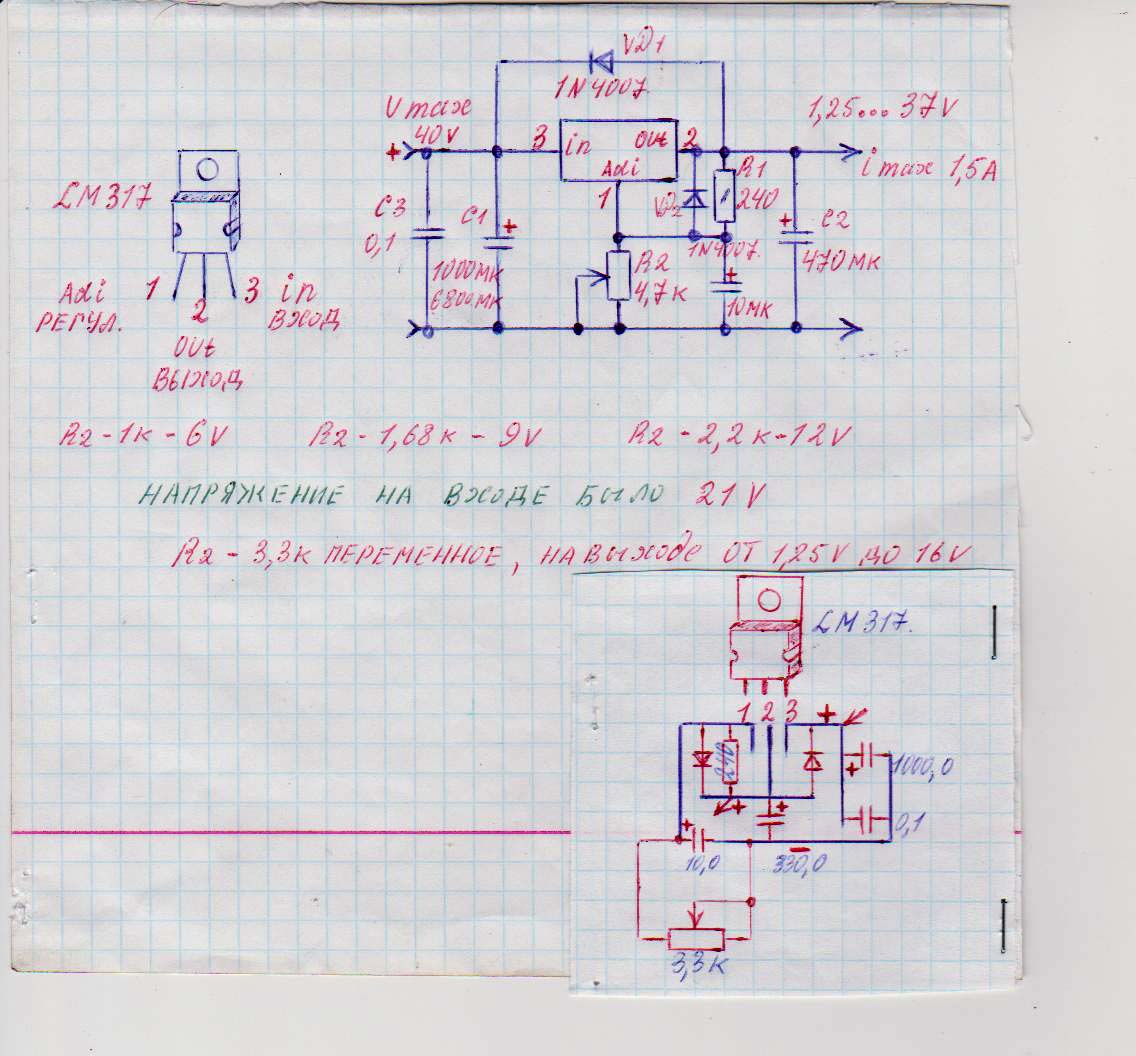 VD1
1N4007
Umax
40V
1,25... 37V
+
3
in
out
2
Adi
1
i max 1,5A
LM317
R1
240
VD2
1N4007
C3
0,1
C1
+
1000МК
6800МК
R2
4,7К
+
10МК
+
C2
470МК
Adi 1 3 in
РЕГУЛ. 2 ВХОД
out
ВЫХОД
R2-1К-6V R2-1,68К-9V R2-2,2К-12V
НАПРЯЖЕНИЕ НА ВХОДЕ БЫЛО 21V
R2-3,3К ПЕРЕМЕННОЕ, НА ВЫХОДЕ ОТ 1,25V ДО 16V
LM317.
1 2 3 +
240
+
1000,0
+
+
0,1
+
10,0
-
330,0
3,3К